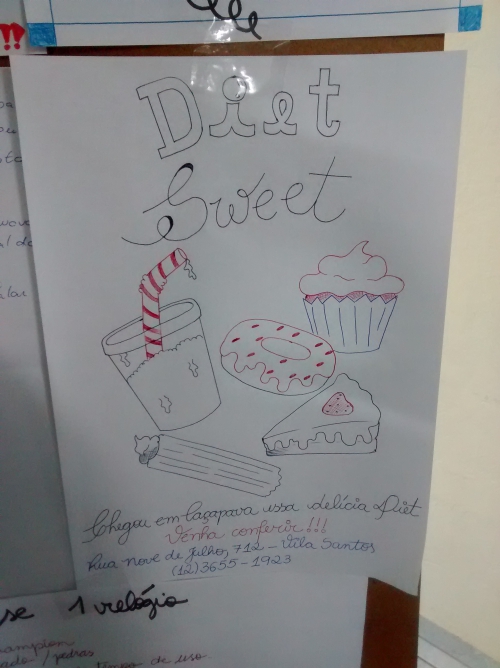 Diet
Sweet
Chegou em Caçapava essa delícia Diet
Venha conferir!!!
Rua Nove de Julho, 712 - Vila Santos
(12)3655-1923
se 1 relógio
tempo de uso